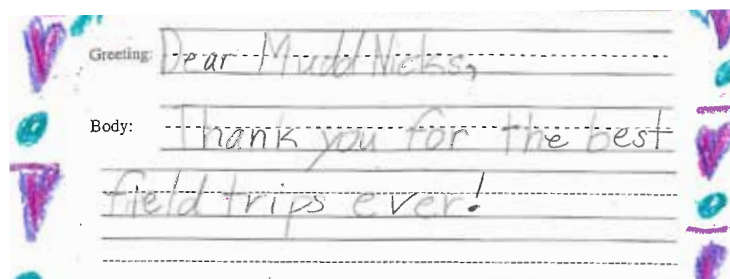 Greeting: Dear Mudd Nicks,
Body: Thank you for the best
field trips ever!